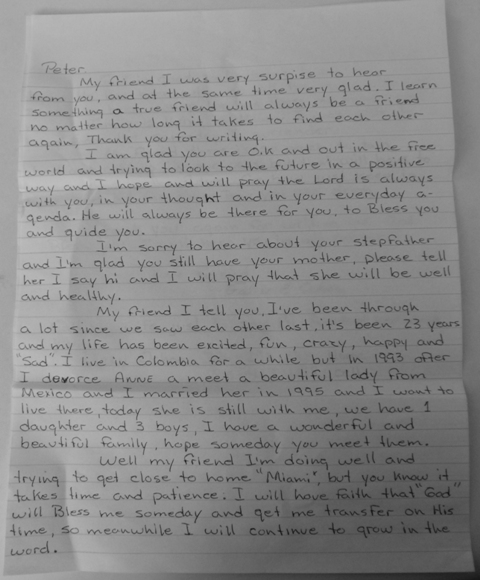 Peter
My friend I was very surpise to hear
from you, and at the same time very glad. I learn
something a true friend will always be a friend
no matter how long it takes to find each other
again, Thank you for writing.
I am glad you are O.K and out in the free
world and trying to look to the future in a positive
way and I hope and will pray the Lord is always
with you, in your thought and in your everyday a-
genda. He will always be there for you, to Bless you
and guide you.
I'm sorry to hear about your stepfather
and I'm glad you still have your mother, please tell
her I say hi and I will pray that she will be well
and healthy.
My friend I tell you, I've been through
a lot since we saw each other last, it's been 23 years
and my life has been excited, fun, crazy, happy and
"Sad". I live in Colombia for a while but in 1993 after
I devorce ANNE a meet a beautiful lady from
Mexico and I married her in 1995 and I want to
live there, today she is still with me, we have 1
daughter and 3 boys, I have a wonderful and
beautiful family, hope someday you meet them.
Well my friend I'm doing well and
trying to get close to home "Miami", but you know it
takes time and patience. I will have faith that "God"
will Bless me someday and get me transfer on His
time, so meanwhile I will continue to grow in the
word.